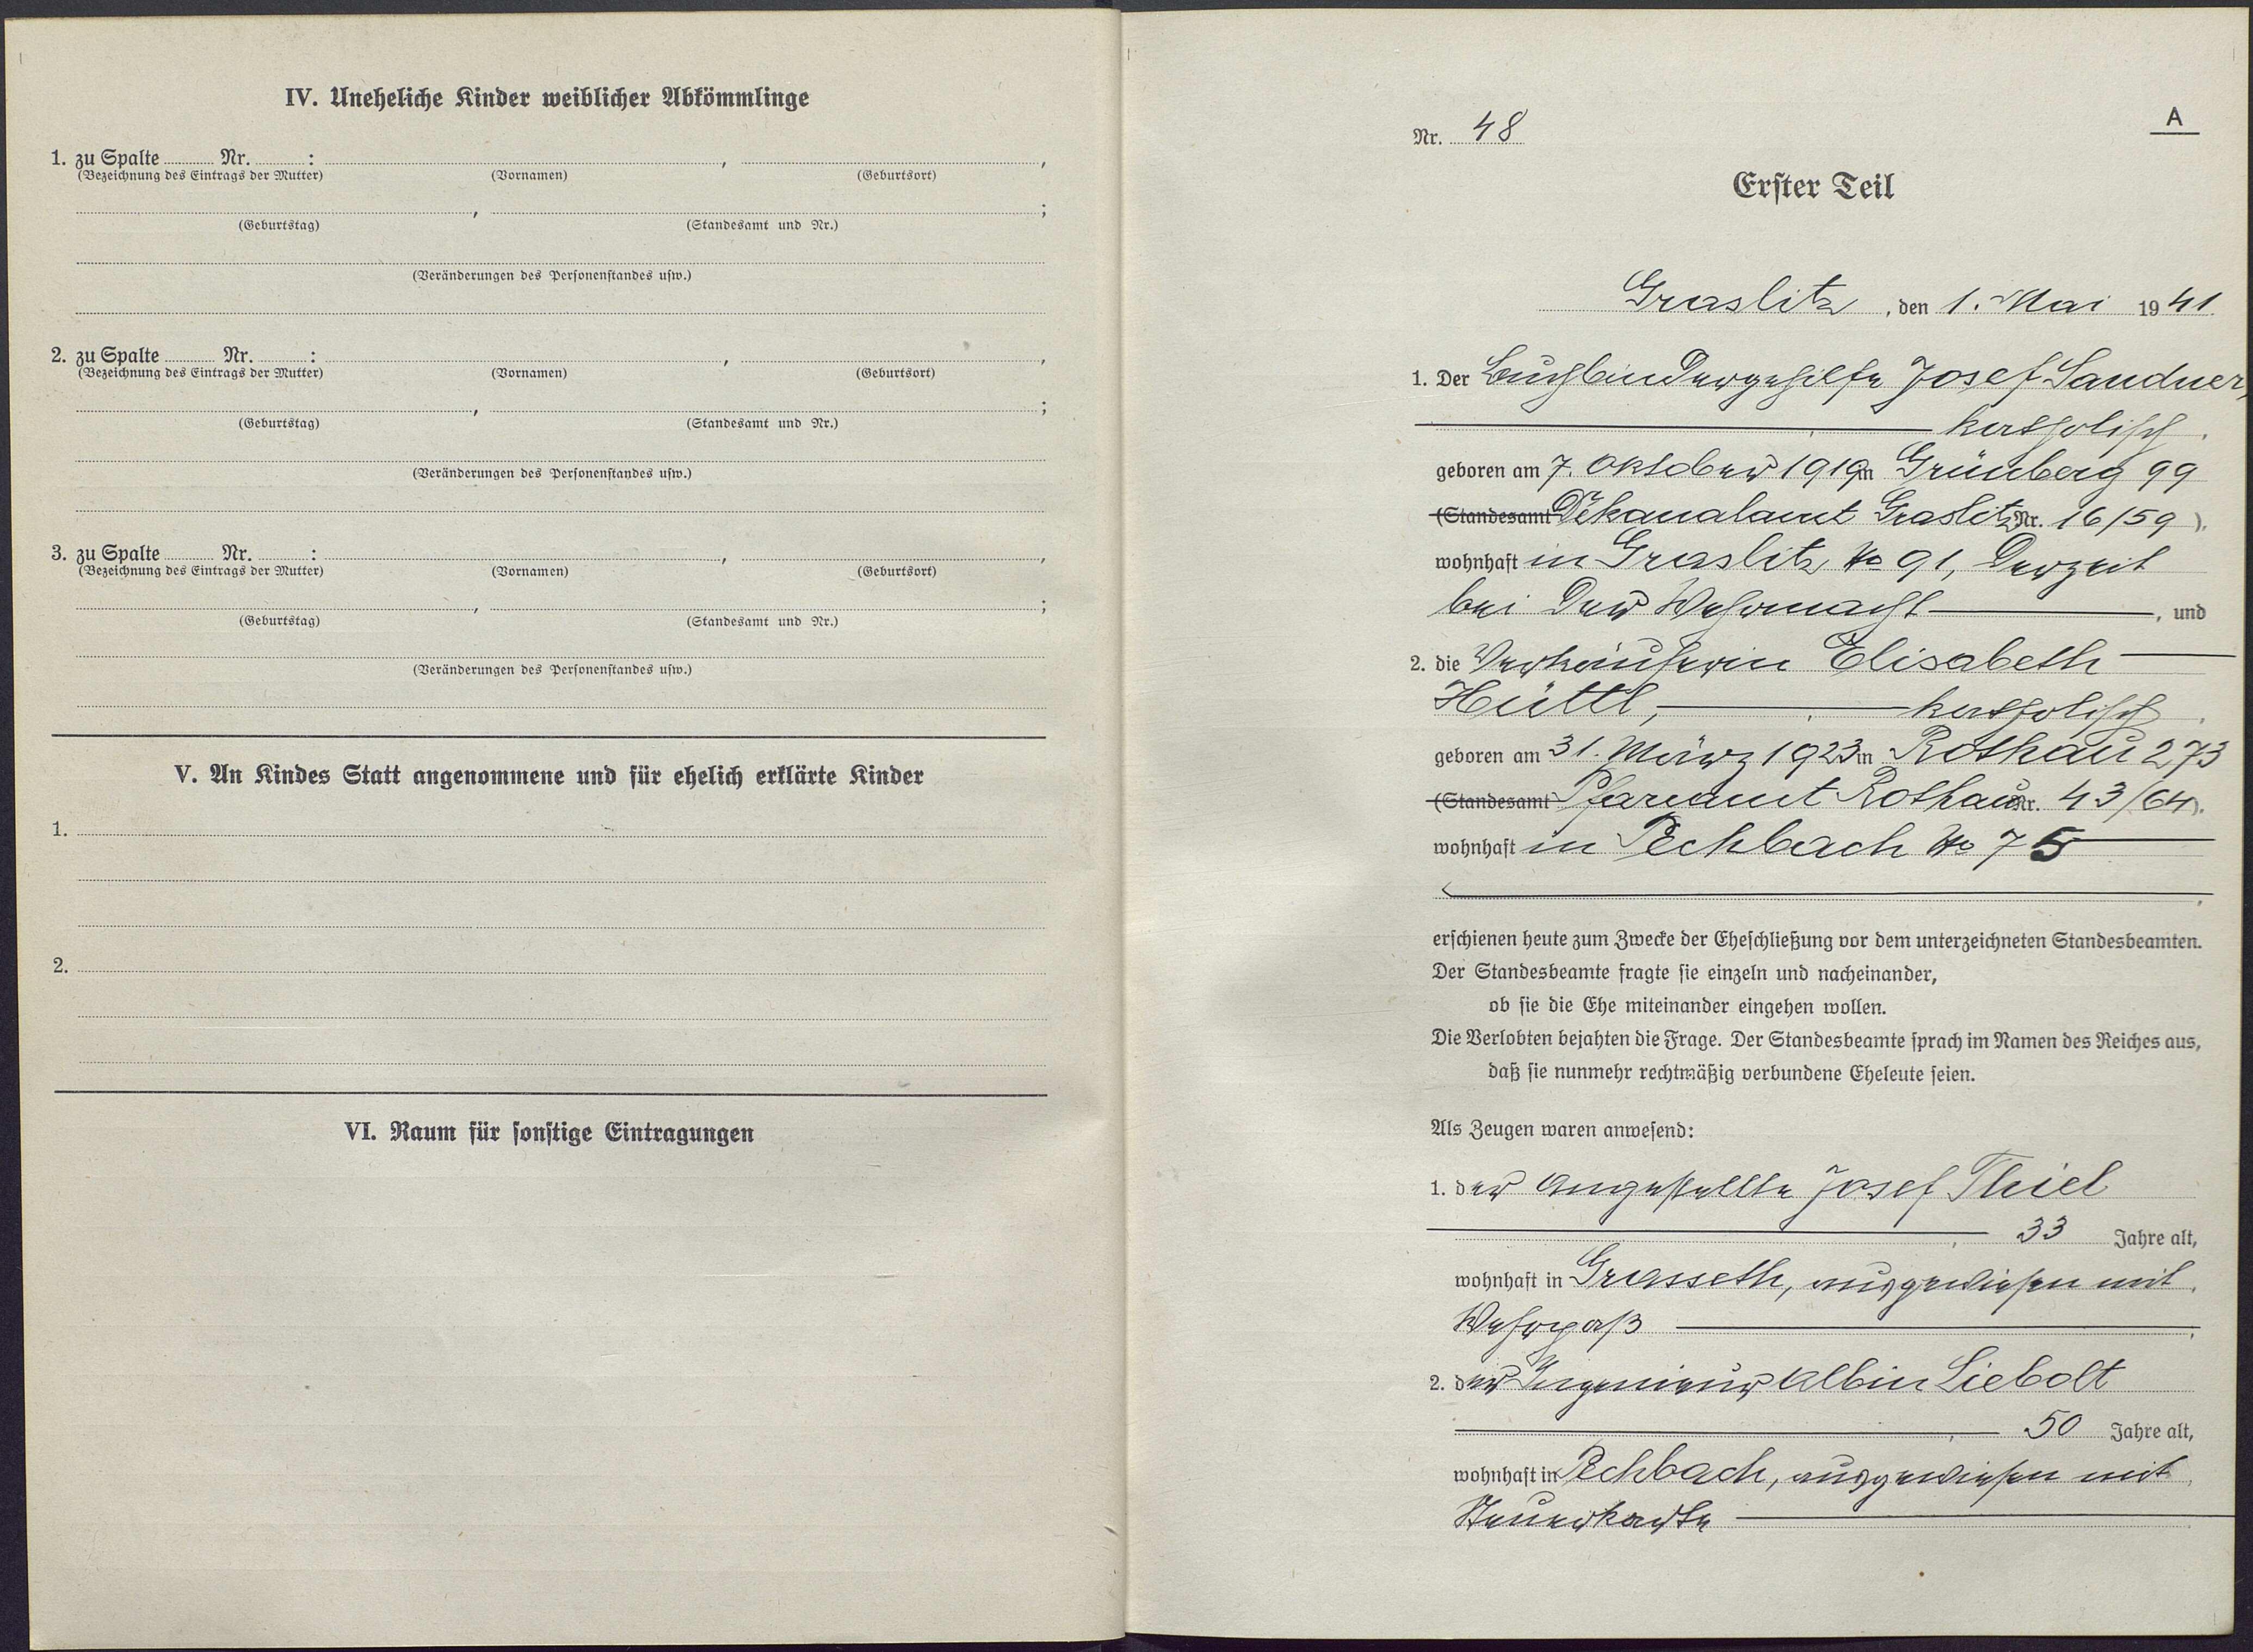 IV. Uneheliche Kinder weiblicher Abkömmlinge
1. zu Spalte Nr. : , ,
(Bezeichnung des Eintrags der Mutter) (Vornamen) (Geburtsort)
, ;
(Geburtstag) (Standesamt und Nr.)
(Veränderungen des Personenstandes usw.)
2. zu Spalte Nr. : , ,
(Bezeichnung des Eintrags der Mutter) (Vornamen) (Geburtsort)
, ;
(Geburtstag) (Standesamt und Nr.)
(Veränderungen des Personenstandes usw.)
3. zu Spalte Nr. : , ,
(Bezeichnung des Eintrags der Mutter) (Vornamen) (Geburtsort)
, ;
(Geburtstag) (Standesamt und Nr.)
(Veränderungen des Personenstandes usw.)
V. An Kindes Statt angenommene und für ehelich erklärte Kinder
1.
2.
VI. Raum für sonstige Eintragungen
A
Nr. 48
Erster Teil
Graslitz, den 1. Mai 1941.
1. Der Buchbindergehilfe Josef Sandner,
katholisch,
geboren am 7. Oktober 1919 in Grünberg 99
(Standesamt Dekanalamt Graslitz Nr. 16/59),
wohnhaft in Graslitz No 91, derzeit
bei der Wehrmacht, und
2. die Verkäuferin Elisabeth
Hüttl, katholisch,
geboren am 31. März 1923 in Rothau 273
(Standesamt Pfarramt Rothau Nr. 43/64),
wohnhaft in Pechbach No 75
erschienen heute zum Zwecke der Eheschließung vor dem unterzeichneten Standesbeamten.
Der Standesbeamte fragte sie einzeln und nacheinander,
ob sie die Ehe miteinander eingehen wollen.
Die Verlobten bejahten die Frage. Der Standesbeamte sprach im Namen des Reiches aus,
daß sie nunmehr rechtmäßig verbundene Eheleute seien.
Als Zeugen waren anwesend:
1. der Angestellte Josef Thiel
, 33 Jahre alt,
wohnhaft in Grasseth, ausgewiesen mit
Wehrpaß,
2. der Ingenieur Albin Liebolt
, 50 Jahre alt,
wohnhaft in Pechbach, ausgewiesen mit
Steuerkarte